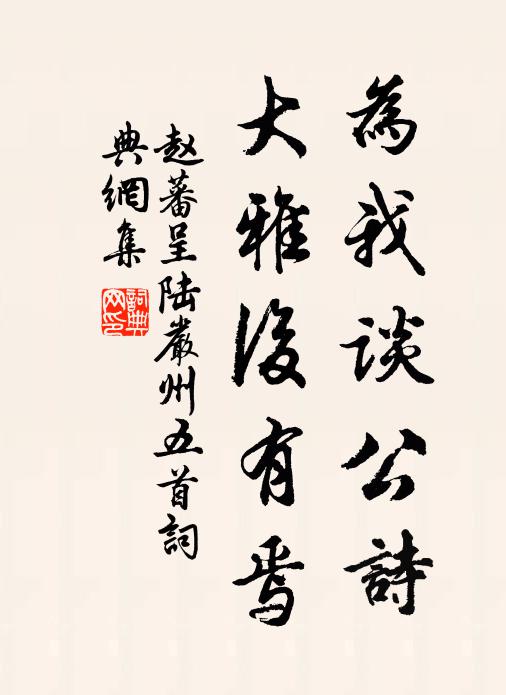 為我談公詩
大雅後有焉
赵蕃呈陆嚴州五首詞
典網集
詞典网印